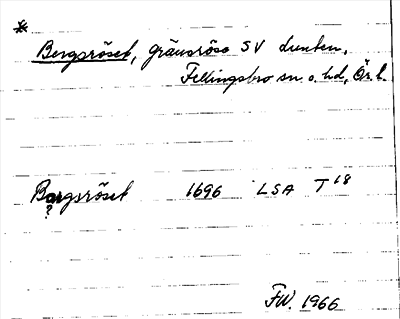 *
Bergsröset, gränsröse SV Lunten,
Fellingsbro sn o. hd, Ör. l.
Bargsröset 1696 LSA T 18
?
FW. 1966